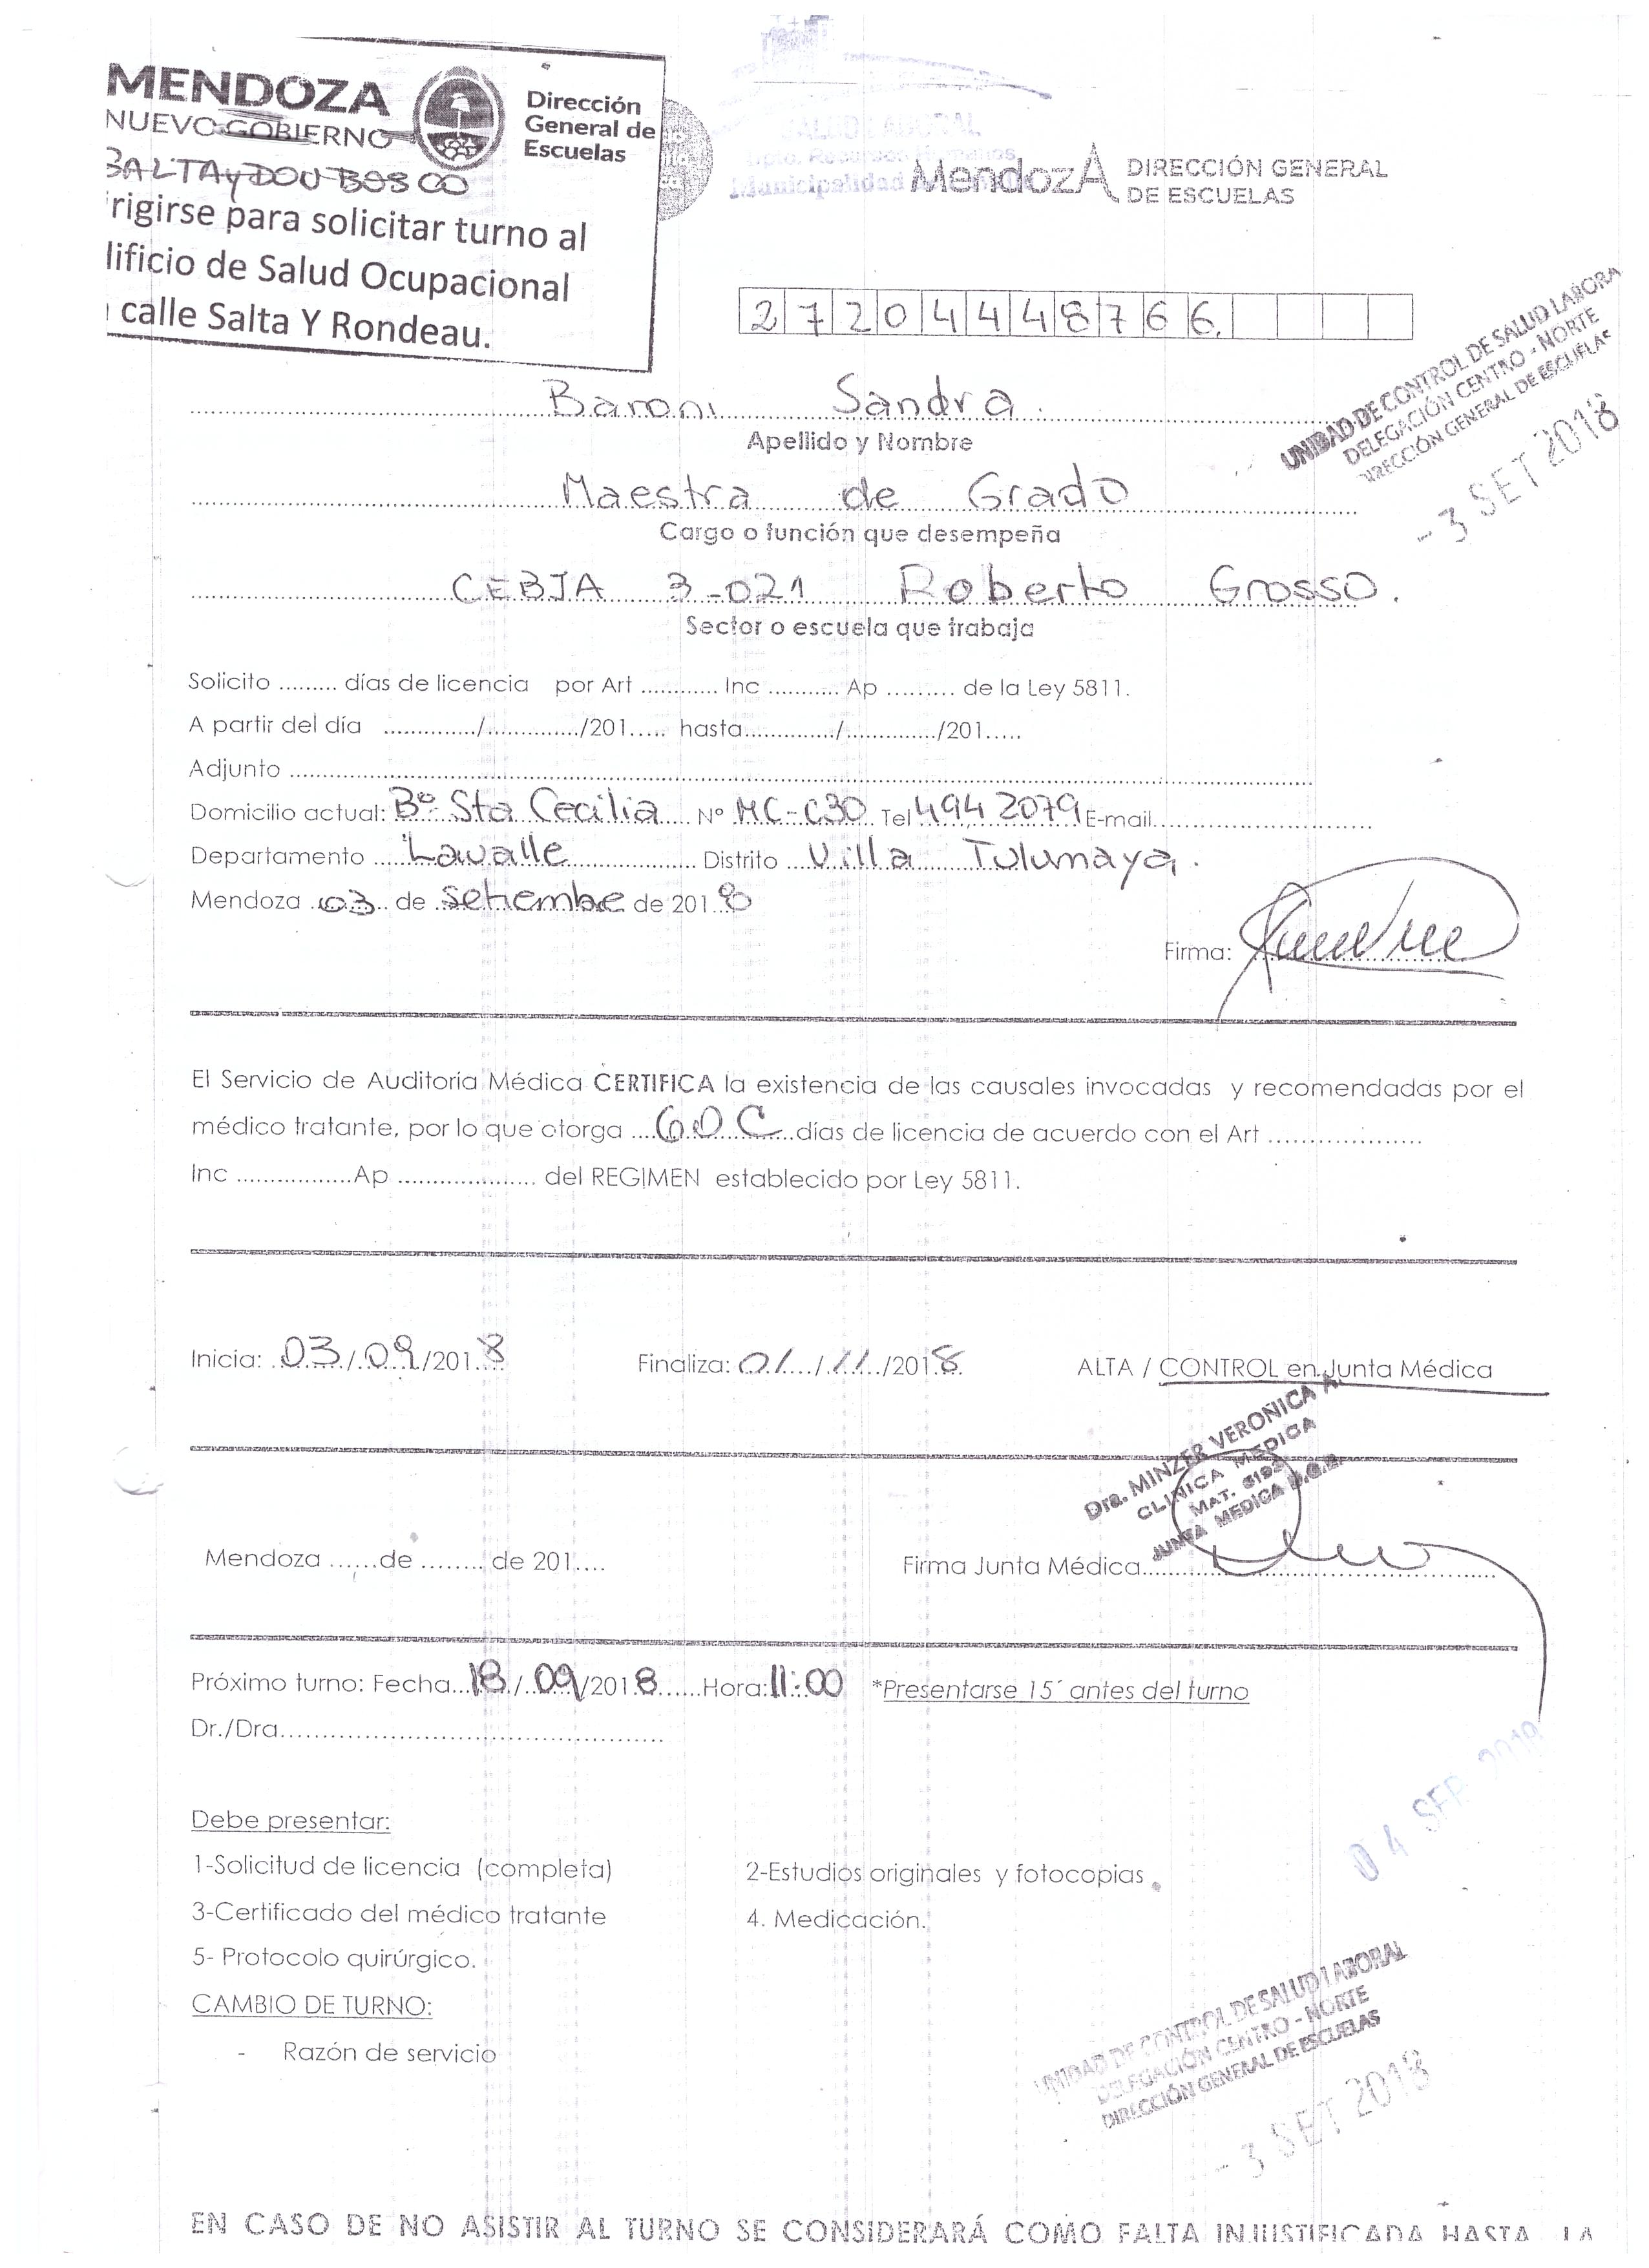 MENDOZA
NUEVO GOBIERNO
Dirección
General de
Escuelas
SALTA y DON BOSCO
rigirse para solicitar turno al
lificio de Salud Ocupacional
calle Salta Y Rondeau.
SALUD LABORAL
Dpto. Recursos Humanos
Municipalidad
MendozA DIRECCIÓN GENERAL
DE ESCUELAS
27204448766.
UNIDAD DE CONTROL DE SALUD LABORA
DELEGACIÓN CENTRO - NORTE
DIRECCIÓN GENERAL DE ESCUELAS
- 3 SET 2018
Baroni Sandra.
Apellido y Nombre
Maestra de Grado
Cargo o función que desempeña
CEBJA 3-021 Roberto Grosso.
Sector o escuela que trabaja
Solicito ......... días de licencia por Art ............ Inc ........... Ap ......... de la Ley 5811.
A partir del día ............./............../201..... hasta............./............./201.....
Adjunto ..........
Domicilio actual: Bº Sta Cecilia Nº MC-C30 Tel 494 2079 E-mail..........
Departamento Lavalle Distrito Villa Tulumaya.
Mendoza 03 de Setiembre de 2018
Firma:
El Servicio de Auditoría Médica CERTIFICA la existencia de las causales invocadas y recomendadas por el
médico tratante, por lo que otorga ....60 C....días de licencia de acuerdo con el Art ....................
Inc .................Ap .................... del REGIMEN establecido por Ley 5811.
Inicia: 03/09/2018 Finaliza: 01/11/2018 ALTA / CONTROL en Junta Médica
Dra. MINZER VERONICA A.
CLINICA MEDICA
MAT. 8192
JUNTA MEDICA D.G.E.
Mendoza ......de ........ de 201.... Firma Junta Médica..........
Próximo turno: Fecha 18/09/2018 Hora: 11:00 *Presentarse 15´ antes del turno
Dr./Dra..........
04 SEP 2018
Debe presentar:
1-Solicitud de licencia (completa) 2-Estudios originales y fotocopias
3-Certificado del médico tratante 4. Medicación.
5- Protocolo quirúrgico.
CAMBIO DE TURNO:
- Razón de servicio
UNIDAD DE CONTROL DE SALUD LABORAL
DELEGACIÓN CENTRO - NORTE
DIRECCIÓN GENERAL DE ESCUELAS
- 3 SET 2018
EN CASO DE NO ASISTIR AL TURNO SE CONSIDERARÁ COMO FALTA INJUSTIFICADA HASTA LA